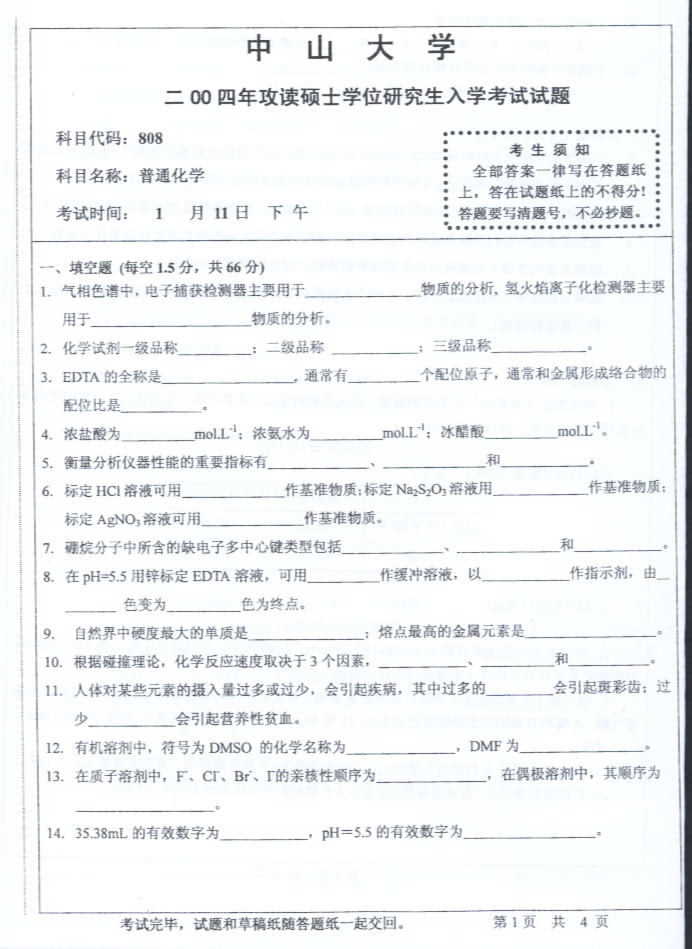 中 山 大 学
二00四年攻读硕士学位研究生入学考试试题
科目代码：808
科目名称：普通化学
考试时间： 1 月 11 日 下 午
考 生 须 知
全部答案一律写在答题纸
上，答在试题纸上的不得分！
答题要写清题号，不必抄题。
一、填空题 (每空 1.5 分，共 66 分)
1. 气相色谱中，电子捕获检测器主要用于____________物质的分析, 氢火焰离子化检测器主要
用于________________物质的分析。
2. 化学试剂一级品称________；二级品称 _________；三级品称__________。
3. EDTA 的全称是______________, 通常有________个配位原子，通常和金属形成络合物的
配位比是_________。
4. 浓盐酸为________mol.L⁻¹；浓氨水为________mol.L⁻¹；冰醋酸________mol.L⁻¹。
5. 衡量分析仪器性能的重要指标有___________、___________和__________。
6. 标定 HCl 溶液可用___________作基准物质；标定 Na₂S₂O₃ 溶液用__________作基准物质；
标定 AgNO₃ 溶液可用___________作基准物质。
7. 硼烷分子中所含的缺电子多中心键类型包括___________、___________和__________。
8. 在 pH=5.5 用锌标定 EDTA 溶液，可用________作缓冲溶液，以_________作指示剂，由__
______ 色变为________色为终点。
9. 自然界中硬度最大的单质是____________；熔点最高的金属元素是______________。
10. 根据碰撞理论，化学反应速度取决于 3 个因素，__________、________和_________。
11. 人体对某些元素的摄入量过多或过少，会引起疾病，其中过多的________会引起斑彩齿；过
少_________会引起营养性贫血。
12. 有机溶剂中，符号为 DMSO 的化学名称为____________，DMF 为_____________。
13. 在质子溶剂中，F⁻、Cl⁻、Br⁻、I⁻的亲核性顺序为____________，在偶极溶剂中，其顺序为
_______________。
14. 35.38mL 的有效数字为__________，pH＝5.5 的有效数字为______________。
考试完毕，试题和草稿纸随答题纸一起交回。 第 1 页 共 4 页